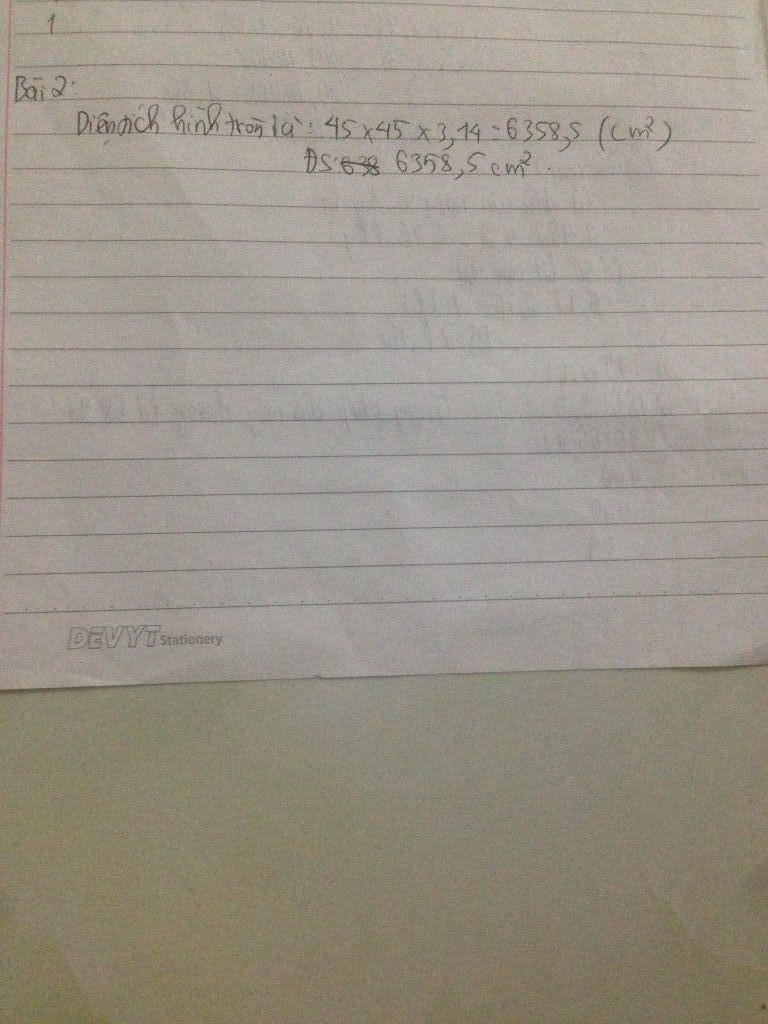 1
Bài 2:
Diện tích hình tròn là: 45 x 45 x 3,14 = 6358,5 (cm²)
ĐS: 6358,5 cm².
DEVYT Stationery